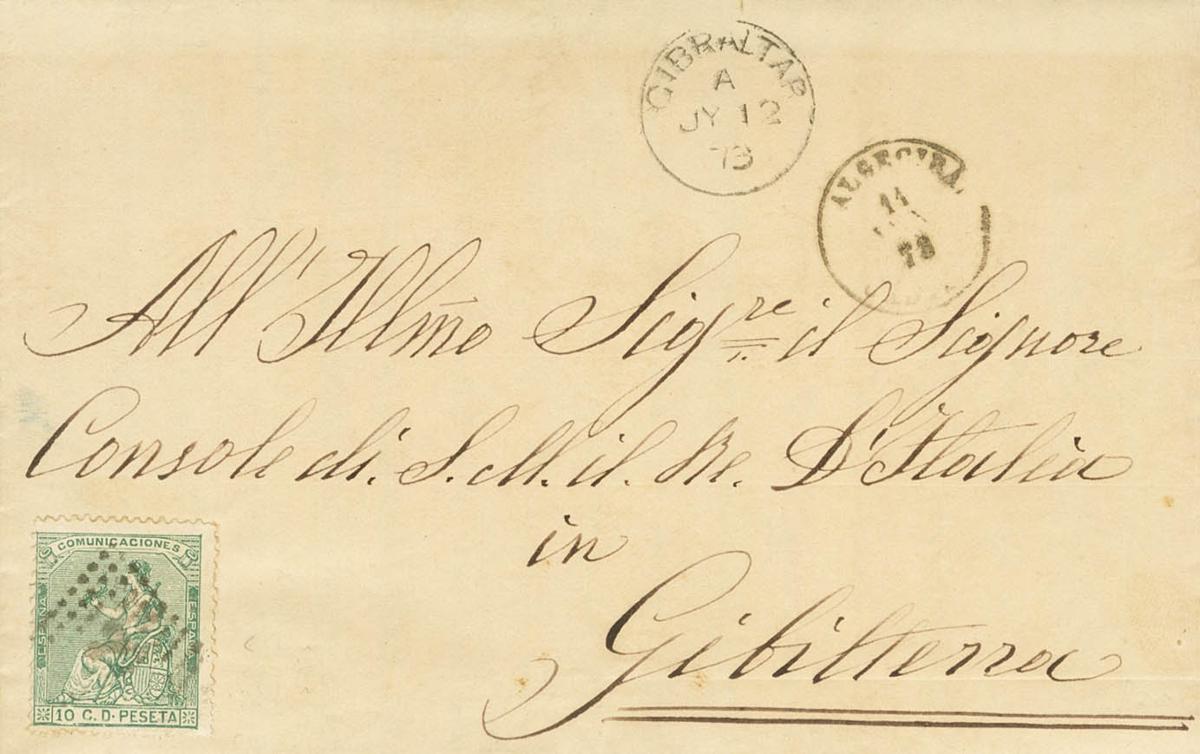 GIBRALTAR
A
JY 12
73
ALGECIRA
11
73
All' Illmo Sigre il Signore
Console di. S. M. il. Re. D'Italia
in
Gibilterra
COMUNICACIONES
ESPAÑA
ESPAÑA
10 C. D. PESETA